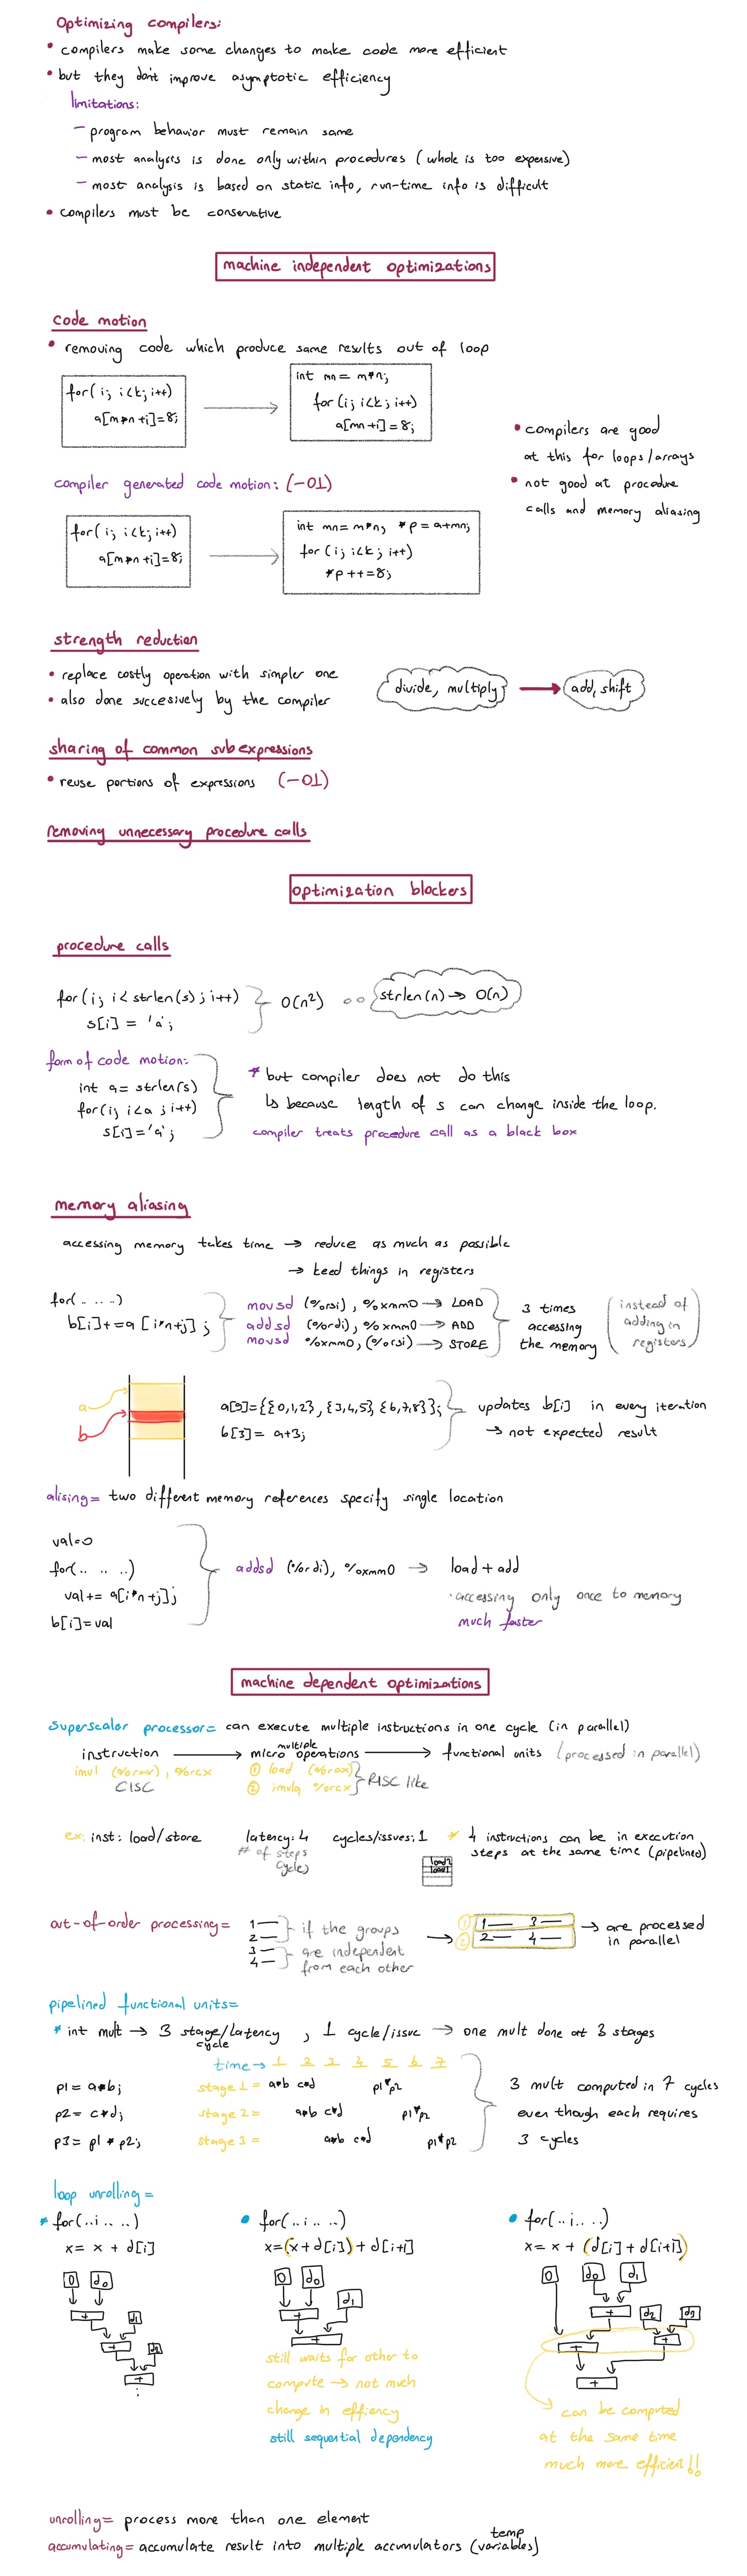 Optimizing compilers:
• compilers make some changes to make code more efficient
• but they don't improve asymptotic efficiency
limitations:
- program behavior must remain same
- most analysis is done only within procedures (whole is too expensive)
- most analysis is based on static info, run-time info is difficult
• compilers must be conservative
machine independent optimizations
code motion
• removing code which produce same results out of loop
for( i; i<k; i++)
a[m*n+i]=8;
→
int mn = m*n;
for(i; i<k; i++)
a[mn+i]=8;
• compilers are good
at this for loops/arrays
• not good at procedure
calls and memory aliasing
compiler generated code motion: (-O1)
for( i; i<k; i++)
a[m*n+i]=8;
→
int mn= m*n, *p = a+mn;
for (i; i<k; i++)
*p++=8;
strength reduction
• replace costly operation with simpler one
• also done succesively by the compiler
divide, multiply → add, shift
sharing of common subexpressions
• reuse portions of expressions (-O1)
removing unnecessary procedure calls
optimization blockers
procedure calls
for(i; i<strlen(s); i++)
s[i] = 'a';
O(n²)
strlen(n) → O(n)
form of code motion:
int a= strlen(s)
for(i; i<a; i++)
s[i]='a';
* but compiler does not do this
↳ because length of s can change inside the loop.
compiler treats procedure call as a black box
memory aliasing
accessing memory takes time → reduce as much as possible
→ keed things in registers
for(.. .. ..)
b[i]+=a [i*n+j] ;
movsd (%rsi), %xmm0 → LOAD
addsd (%rdi), %xmm0 → ADD
movsd %xmm0, (%rsi) → STORE
3 times
accessing
the memory
(instead of
adding in
registers)
a
b
a[9]={{0,1,2}, {3,4,5} {6,7,8}};
b[3]= a+3;
updates b[i] in every iteration
→ not expected result
alising= two different memory references specify single location
val=0
for(.. .. ..)
val+= a[i*n+j];
b[i]=val
addsd (%rdi), %xmm0 → load + add
·accessing only once to memory
much faster
machine dependent optimizations
superscalar processor= can execute multiple instructions in one cycle (in parallel)
multiple
instruction → micro operations → functional units (processed in parallel)
imul (%rax), %rcx
CISC
① load (%rax)
② imulq %rcx
RISC like
ex: inst: load/store latency: 4 cycles/issues: 1
# of steps
cycles
* 4 instructions can be in execution
steps at the same time (pipelined)
load2
load1
out-of-order processing=
1—
2—
3—
4—
if the groups
are independent
from each other
→
① 1— 3—
② 2— 4—
→ are processed
in parallel
pipelined functional units=
* int mult → 3 stage/latency , 1 cycle/issue → one mult done at 3 stages
cycle
time → 1 2 3 4 5 6 7
p1= a*b; stage 1 = a*b c*d p1*p2
p2= c*d; stage 2 = a*b c*d p1*p2
p3= p1 * p2; stage 3 = a*b c*d p1*p2
3 mult computed in 7 cycles
even though each requires
3 cycles
loop unrolling=
* for(..i.. ..)
x= x + d[i]
0 d0
+ d1
+ d2
+
• for(..i.. ..)
x=(x+d[i])+d[i+1]
0 d0
+ d1
+
still waits for other to
compute → not much
change in effiency
still sequential dependency
• for(..i.. ..)
x= x + (d[i] + d[i+1])
0 d0 d1
+ d2 d3
+ +
+
can be computed
at the same time
much more efficient!!
unrolling= process more than one element
temp
accumulating= accumulate result into multiple accumulators (variables)